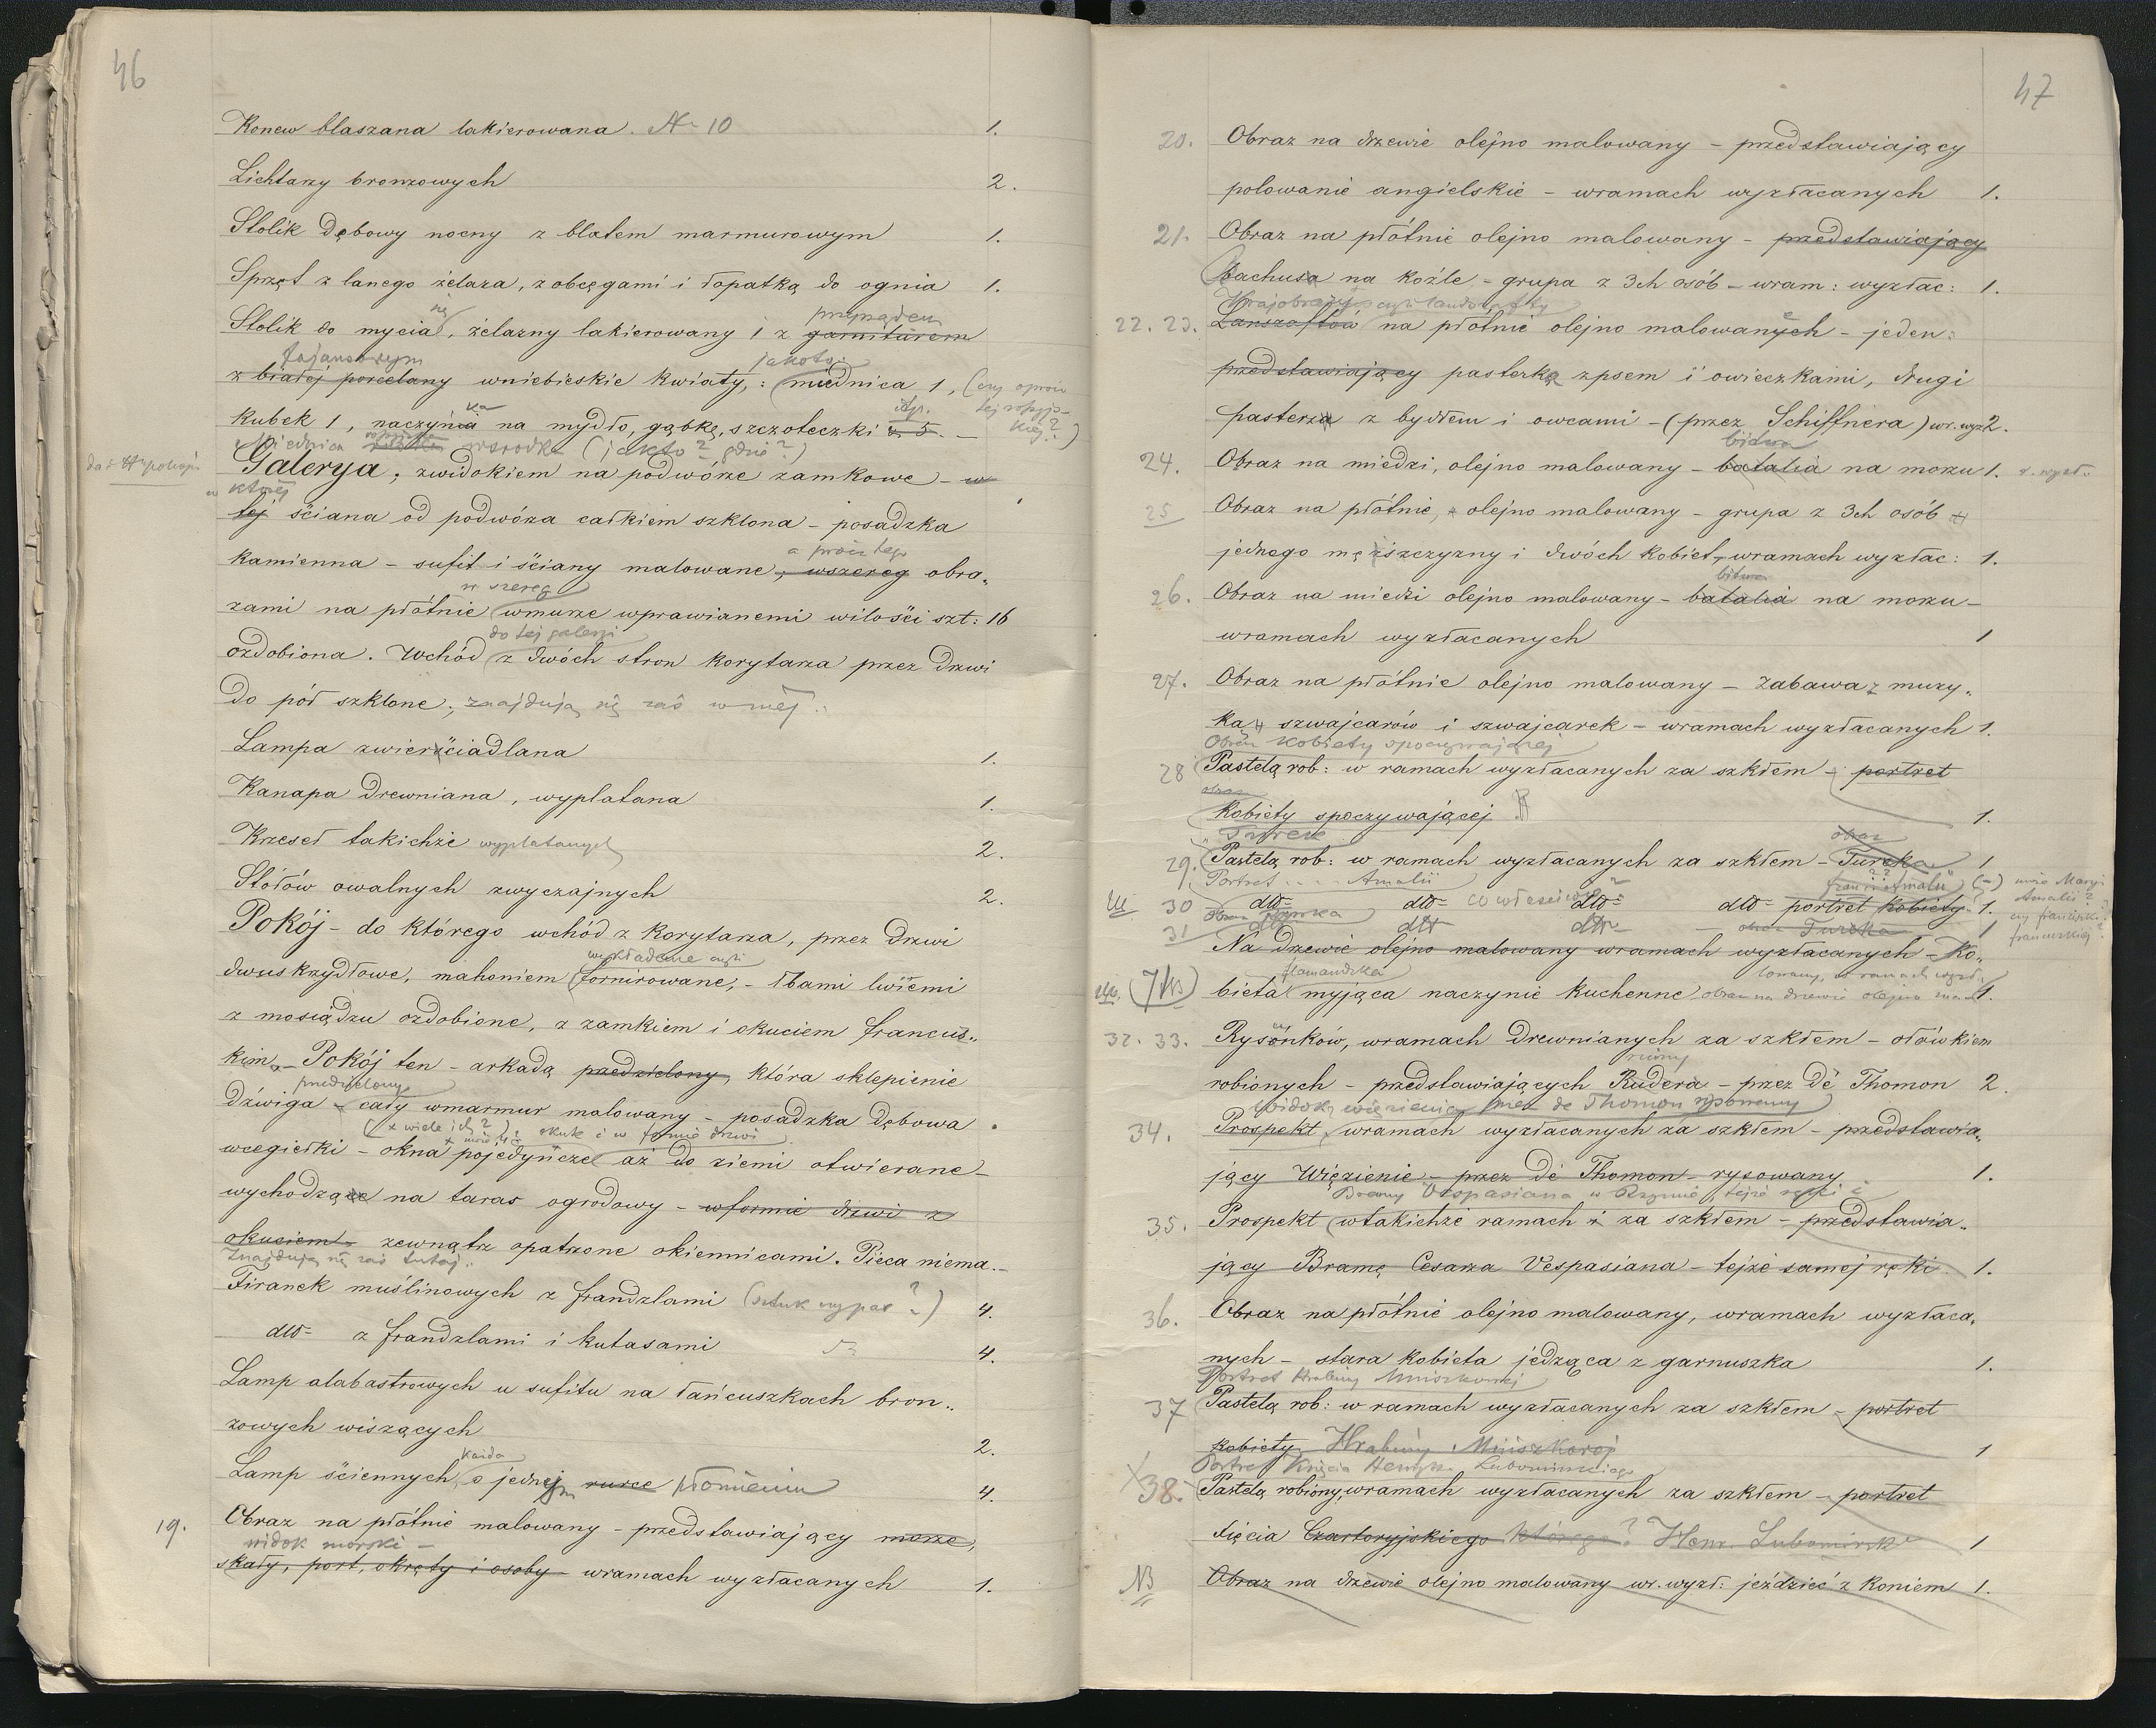 46
Konew blaszana lakierowana. N- 10 1.
Lichtarzy bronzowych 2.
Stolik Dębowy nocny z blatem marmurowym 1.
Sprzęt z lanego żelaza, z obcęgami i łopatką do ognia 1.
się przyrządem
Stolik do mycia, żelazny lakierowany i z garniturem
fajansowym jakoto:
z białej porcelany wniebieskie kwiaty,: miednica 1, (czy oprócz
kubek 1, naczynia na mydło, gąbkę, szczoteczki itp. z 5. –
wsrodku (jakto? gdzie?)
Galerya, zwidokiem na podwórze zamkowe – w
w której
tej ściana od podwórza całkiem szklona – posadzka
a prócz tego
kamienna – sufit i ściany malowane, wszereg obra„
w szereg
zami na płótnie wmurze wprawianemi wilości szt: 16
do tej galeryi
ozdobiona. Wchód z dwóch stron korytarza przez Drzwi
do pół szklone; znajdują się zaś w niej:
Lampa zwierściadlana 1.
Kanapa Drewniana, wyplatana 1.
Krzeseł takichże wyplatanych 2.
Stołów owalnych zwyczajnych 2.
Pokój – do którego wchód z korytarza, przez drzwi
wykładane czyli
dwuskrzydłowe, mahoniem fornirowane, – łbami lwiemi
z mosiądzu ozdobione, z zamkiem i okuciem francus„
kim – Pokój ten – arkadą przedzielony, która sklepienie
przedzielony
Dźwiga – cały wmarmur malowany – posadzka Dębowa
(x wiele ich?) okute i w formie drzwi
wcegiełki – okna pojedyńcze aż do ziemi otwierane –
wychodzące na taras ogrodowy – wformie drzwi z
okuciem – zewnątrz opatrzone okiennicami. Pieca niema. –
Znajdują się zaś tutaj:
Firanek muślinowych z frandzlami (sztuk czy par?) 4.
dto= z frandzlami i kutasami 4.
Lamp alabastrowych u sufitu na łańcuszkach bron„
zowych wiszących 2.
każda
Lamp ściennych, o jednej rurce płomieniu 4.
19. Obraz na płótnie malowany – przedstawiający morze,
widok morski –
skały, port, okręty i osoby – wramach wyzłacanych 1.
47
20. Obraz na drzewie olejno malowany – przedstawiający
polowanie angielskie – wramach wyzłacanych 1.
21. Obraz na płótnie olejno malowany – przedstawiający
Bachusa na koźle, – grupa z 3ch osób – wram: wyzłac: 1.
Krajobrazy czyli landszafty
22. 23. Lanszaftów na płótnie olejno malowanych – jeden:
przedstawiający pasterkę zpsem i owieczkami, drugi
pasterza z bydłem i owcami – (przez Schiffnera) wr. wyz 2.
bitwa
24. Obraz na miedzi, olejno malowany – batalia na morzu 1. r. wyzł.
25 Obraz na płótnie, olejno malowany – grupa z 3ch osób
jednego męższczyzny i dwóch kobiet, wramach wyzłac: 1.
bitwa
26. Obraz na miedzi olejno malowany – batalia na morzu –
wramach wyzłacanych 1
27. Obraz na płótnie olejno malowany – zabawa z muzy„
ką szwajcarów i szwajcarek – wramach wyzłacanych 1.
Obraz kobiety spoczywającej
28 Pastelą rob: w ramach wyzłacanych za szkłem – portret
obraz
kobiety spoczywającej 1.
„Turek obraz
29. Pastelą rob: w ramach wyzłacanych za szkłem – Turka 1
Portret .... Amalii
30 dto= dto= co właściwie? dto= dto= portret kobiety 1.
Obraz Turka
31 dto dto dto – obraz Turka 1
Na drzewie olejno malowany wramach wyzłacanych – Ko„
flamandzka
bieta myjąca naczynie kuchenne, obraz na drzewie olejno malo 1.
32. 33. Rysunków, wramach Drewnianych za szkłem – ołówkiem
ruiny
robionych – przedstawiających Rudera – przez Dè Thomon 2.
Widok więzienia przez de Thomon rysowany
34. Prospekt, wramach wyzłacanych za szkłem – przedstawia„
jący Więzienie – przez Dè Thomon – rysowany 1.
Bramy Vespasiana w Rzymie, tejże ręki i
35. Prospekt wtakichże ramach i za szkłem – przedstawia„
jący Bramę Cesarza Vespasiana – tejże samej ręki 1.
36. Obraz na płótnie olejno malowany, wramach wyzłaca„
nych – stara kobieta jedząca z garnuszka 1.
Portret Hrabiny Mniszkowej
37 Pastelą rob: w ramach wyzłacanych za szkłem – portret
kobiety, Hrabiny Mniszkowej 1
Portret Księcia Henryka Lubomirskiego
38. Pastelą robiony, wramach wyzłacanych za szkłem – portret
xięcia Czartoryjskiego którego? Henr. Lubomirsk 1
NB Obraz na drzewie olejno malowany wr. wyzł: jeździec z koniem 1.